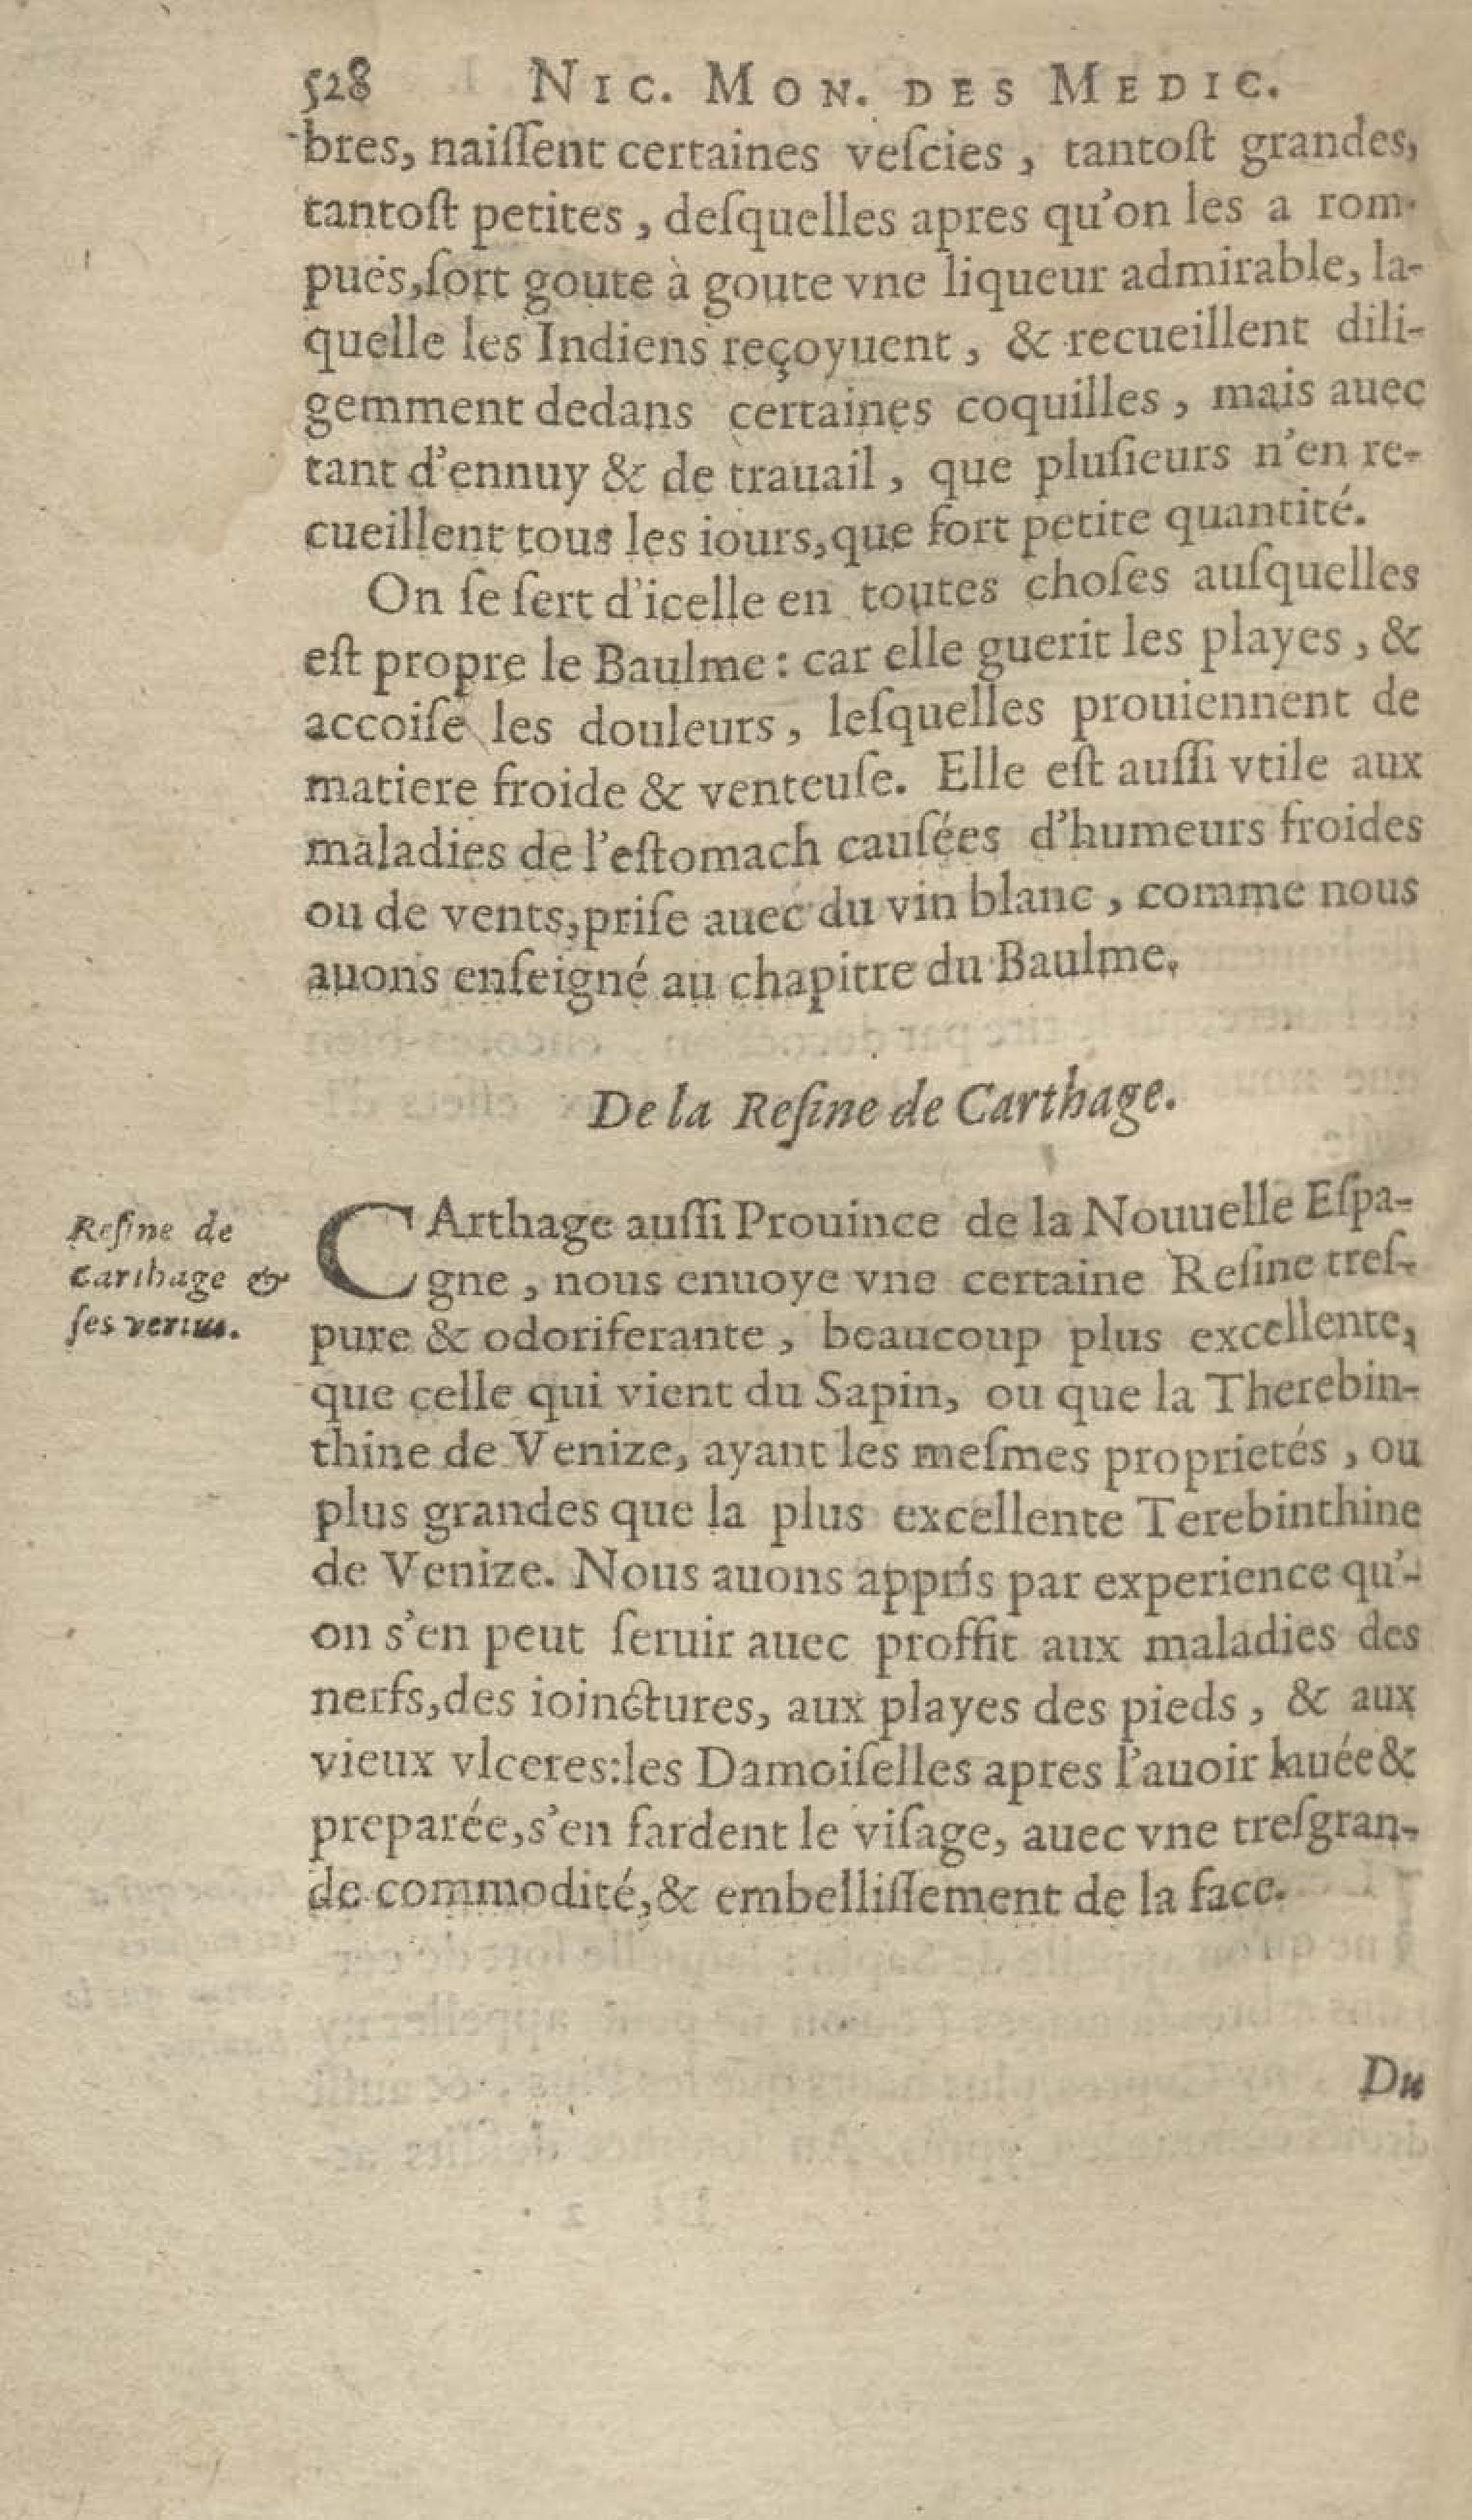 528 NIC. MON. DES MEDIC.
bres, naiſſent certaines veſcies, tantoſt grandes,
tantoſt petites, deſquelles apres qu'on les a rom-
pués, ſort goute à goute vne liqueur admirable, la-
quelle les Indiens reçoyuent, & recueillent dili-
gemment dedans certaines coquilles, mais auec
tant d'ennuy & de trauail, que pluſieurs n'en re-
cueillent tous les iours, que fort petite quantité.
On ſe ſert d'icelle en toutes choſes auſquelles
eſt propre le Baulme: car elle guerit les playes, &
accoiſe les douleurs, leſquelles prouiennent de
matiere froide & venteuſe. Elle eſt auſſi vtile aux
maladies de l'eſtomach cauſées d'humeurs froides
ou de vents, priſe auec du vin blanc, comme nous
auons enſeigné au chapitre du Baulme.
De la Reſine de Carthage.
Reſine de
Carthage &
ſes vertus.
CArthage auſſi Prouince de la Nouuelle Eſpa-
gne, nous enuoye vne certaine Reſine treſ-
pure & odoriferante, beaucoup plus excellente,
que celle qui vient du Sapin, ou que la Therebin-
thine de Venize, ayant les meſmes proprietés, ou
plus grandes que la plus excellente Terebinthine
de Venize. Nous auons appris par experience qu'-
on s'en peut ſeruir auec proffit aux maladies des
nerfs, des ioinctures, aux playes des pieds, & aux
vieux vlceres: les Damoiſelles apres l'auoir lauée &
preparée, s'en fardent le viſage, auec vne treſgran-
de commodité, & embelliſſement de la face.
Du